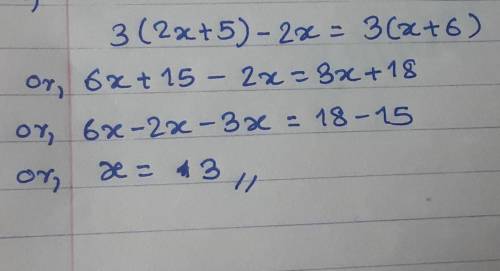 3(2x+5)-2x = 3(x+6)
or, 6x+15-2x=3x+18
or, 6x-2x-3x = 18-15
or, x = 3 //